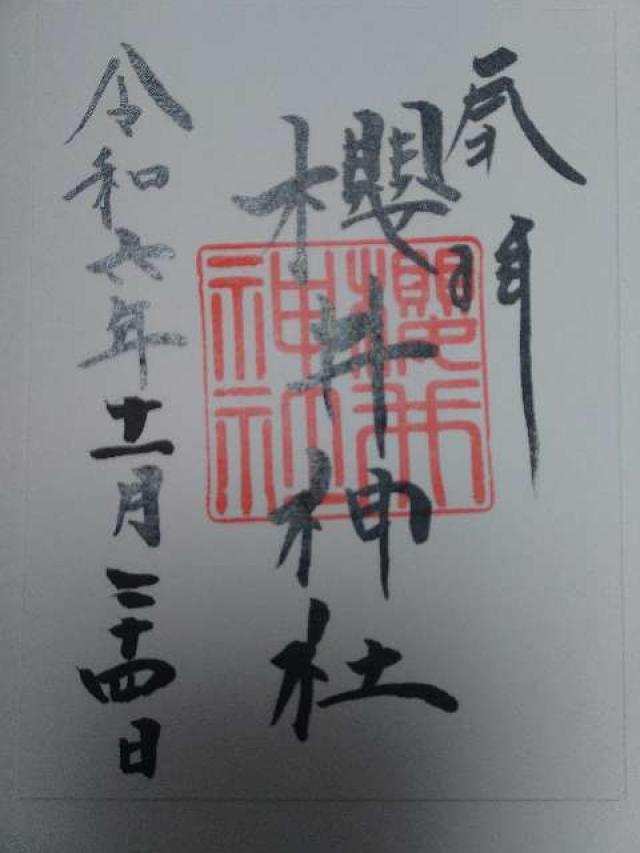 奉拝
櫻井神社
櫻井神社
令和六年十一月二十四日